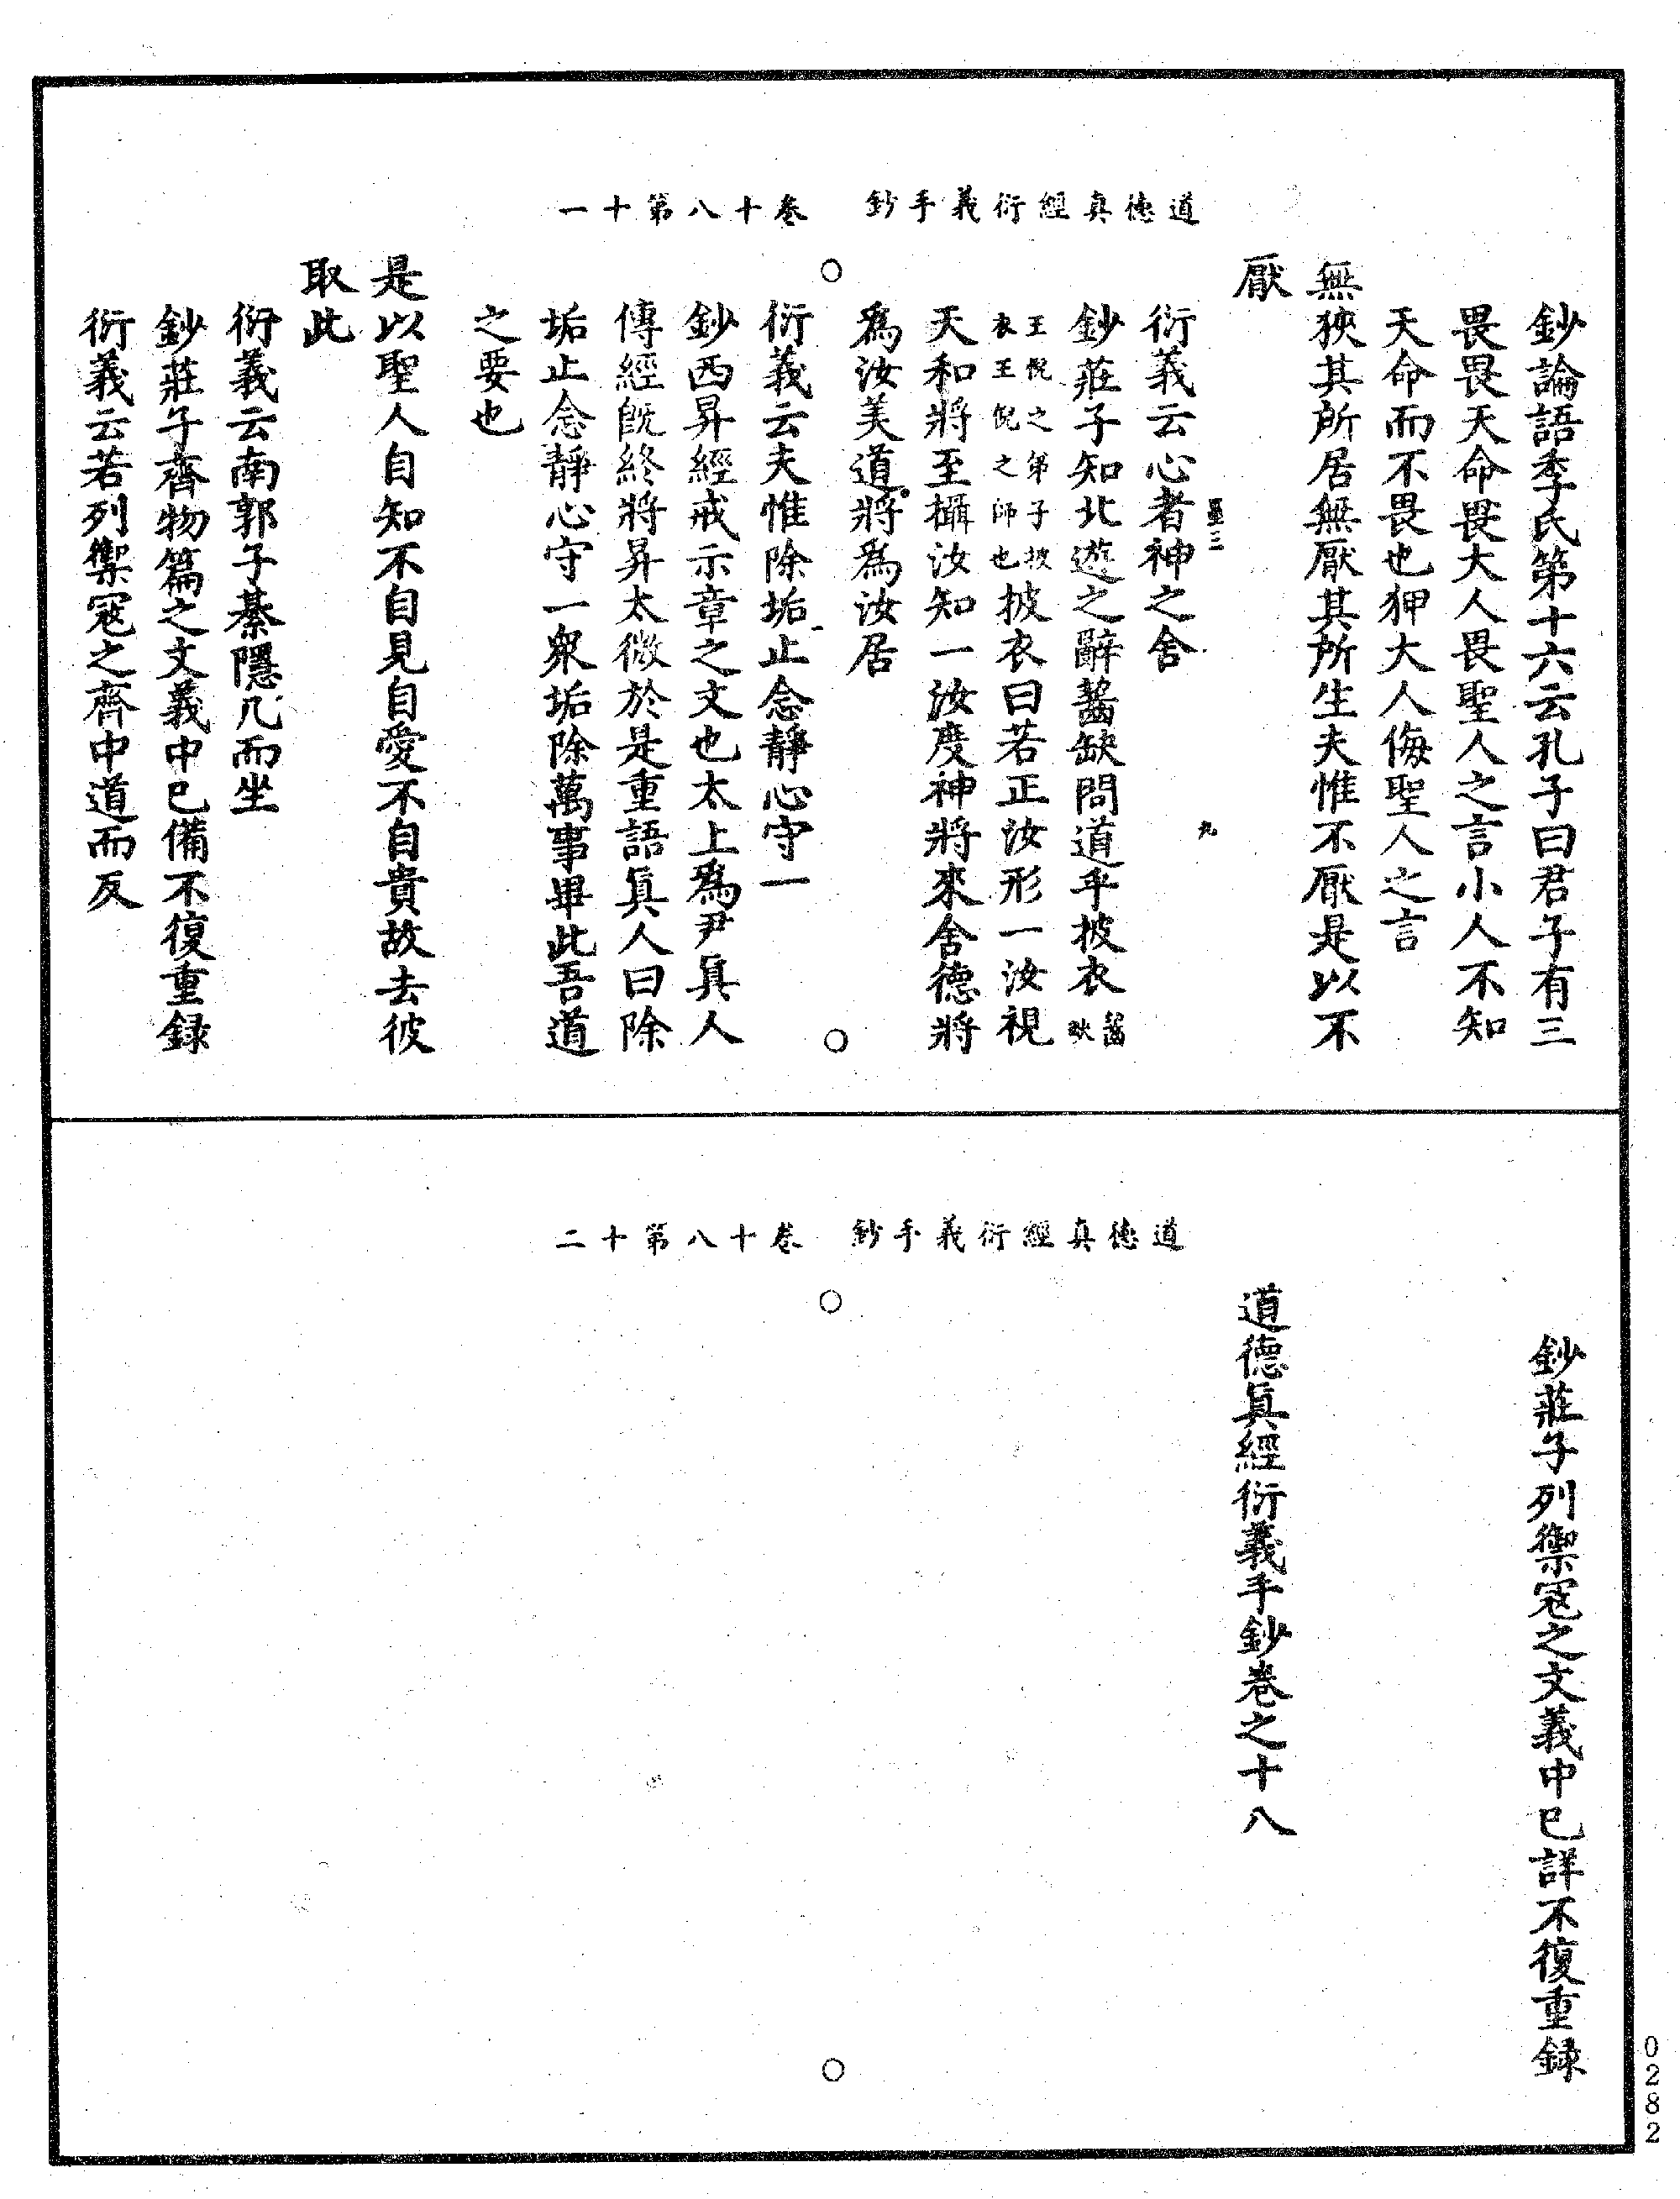 道德真經衍義手鈔　卷十八第十一
鈔論語季氏第十六云孔子曰君子有三
畏畏天命畏大人畏聖人之言小人不知
天命而不畏也狎大人侮聖人之言
無狹其所居無厭其所生夫惟不厭是以不
厭
九
衍義云心者神之舍
鈔莊子知北遊之辭齧缺問道乎披衣齧缺
王倪之弟子披衣王倪之師也披衣曰若正汝形一汝視
天和將至攝汝知一汝度神將來舍德將
爲汝美道將爲汝居
衍義云夫惟除垢止念靜心守一
鈔西昇經戒示章之文也太上爲尹眞人
傳經旣終將昇太微於是重語眞人曰除
垢止念靜心守一衆垢除萬事畢此吾道
之要也
是以聖人自知不自見自愛不自貴故去彼
取此
衍義云南郭子綦隱几而坐
鈔莊子齊物篇之文義中已備不復重録
衍義云若列禦寇之齊中道而反
道德真經衍義手鈔　卷十八第十二
鈔莊子列禦寇之文義中已詳不復重録
道德眞經衍義手鈔卷之十八
0282